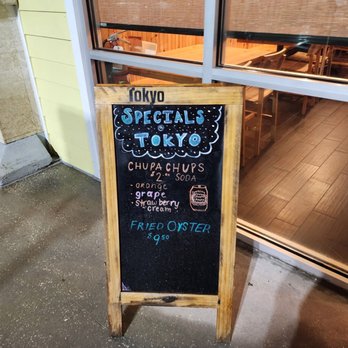 Tokyo
SPECIALS @
TOKYO
CHUPA CHUPS
$2.00 SODA
• orange
• grape
• strawberry
cream
FRIED OYSTER
$9.50